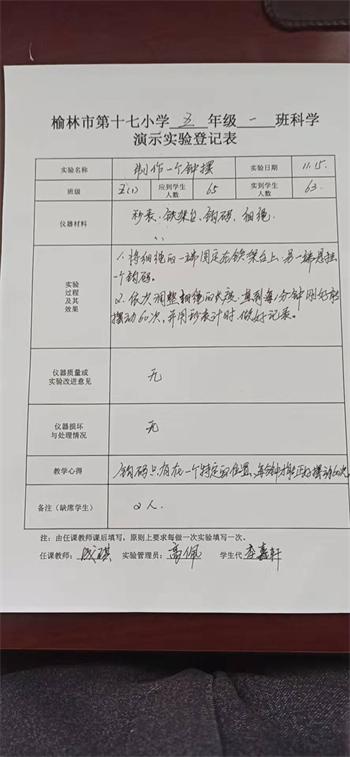 榆林市第十七小学 五 年级 一 班科学
演示实验登记表
实验名称 制作一个钟摆 实验日期 11.15.
班级 五(1) 应到学生人数 65 实到学生人数 63.
仪器材料 秒表、铁架台、钩码、细绳.
实验过程及其效果
1. 将细绳的一端固定在铁架台上,另一端悬挂
一个钩码。
2. 依次调整细绳的长度,直到每1分钟刚好能
摆动60次,并用秒表计时,做好记录。
仪器质量或实验改进意见 无
仪器损坏与处理情况 无
教学心得 钩码只有在一个特定的位置,每分钟才能正好摆动60次.
备注(缺席学生) 2人.
注:由任课教师课后填写,原则上要求每做一次实验填写一次。
任课教师: 实验管理员:高佩 学生代 李嘉轩